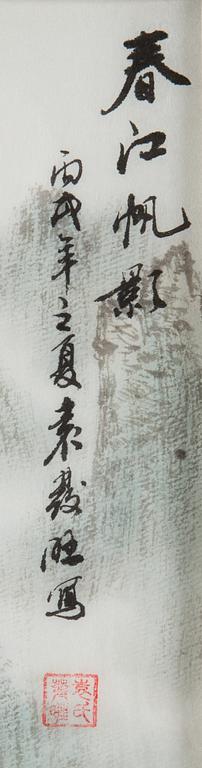 春江帆影
丙戌年之夏袁發旺寫